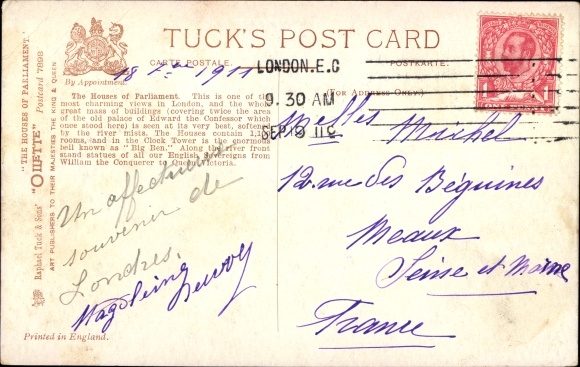 TUCK'S POST CARD
CARTE POSTALE.
POSTKARTE.
(FOR ADDRESS ONLY.)
By Appointment.
18 1911
LONDON. E.C
9. 30 AM
SEP 19 11
The Houses of Parliament. This is one of the
most charming views in London, and the whole
great mass of buildings (covering twice the area
of the old palace of Edward the Confessor which
once stood here) is seen at its very best, softened
by the river mists. The Houses contain
rooms, and in the Clock Tower is the enormous
bell known as "Big Ben." Along the river front
stand statues of all our English Sovereigns from
William the Conqueror to Queen Victoria.
"THE HOUSES OF PARLIAMENT."
Raphael Tuck & Sons' "OILETTE" Postcard 7898
ART PUBLISHERS TO THEIR MAJESTIES THE KING & QUEEN
Un affectueux
souvenir de
Londres.
Printed in England.
Melles Michel
12 rue des Béguines
Meaux
Seine et Marne
France